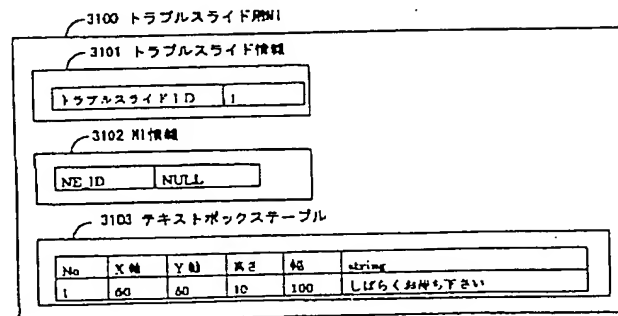 3100 トラブルスライド用NI
3101 トラブルスライド情報
トラブルスライドID 1
3102 NI情報
NE_ID NULL
3103 テキストボックステーブル
No X軸 Y軸 高さ 幅 string
1 60 60 10 100 しばらくお待ち下さい